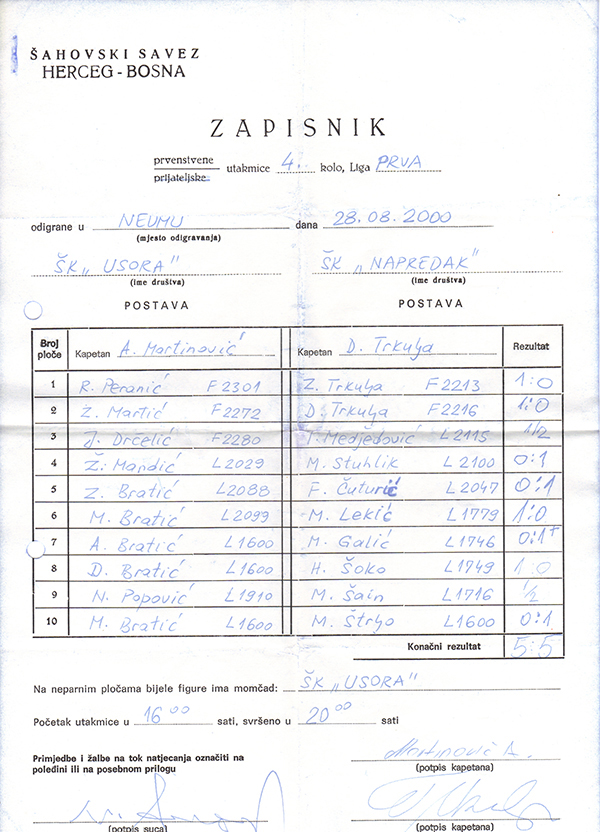 ŠAHOVSKI SAVEZ
HERCEG-BOSNA
ZAPISNIK
prvenstvene
prijateljske utakmice 4. kolo, Liga PRVA
odigrane u NEUMU dana 28.08.2000
(mjesto odigravanja)
ŠK „USORA" ŠK „NAPREDAK"
(ime društva) (ime društva)
POSTAVA POSTAVA
Broj ploče Kapetan A. Martinović Kapetan D. Trkulja Rezultat
1 R. Peranić F2301 Ž. Trkulja F2213 1:0
2 Ž. Martić F2272 D. Trkulja F2216 1:0
3 J. Drčelić F2280 T. Medjedović L2115 1/2
4 Ž. Mandić L2029 M. Stuhlik L2100 0:1
5 Z. Bratić L2088 F. Čuturić L2047 0:1
6 M. Bratić L2099 M. Lekić L1779 1:0
7 A. Bratić L1600 M. Galić L1746 0:1+
8 D. Bratić L1600 H. Šoko L1749 1:0
9 N. Popović L1910 M. Šain L1716 1/2
10 M. Bratić L1600 M. Štrbo L1600 0:1
Konačni rezultat 5:5
Na neparnim pločama bijele figure ima momčad: ŠK „USORA"
Početak utakmice u 16 00 sati, svršeno u 20 00 sati
Primjedbe i žalbe na tok natjecanja označiti na
poleđini ili na posebnom prilogu
Martinović A.
(potpis kapetana)
(potpis suca) (potpis kapetana)